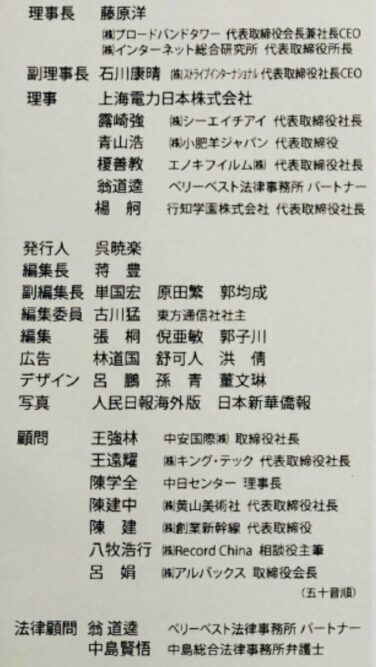 理事長 藤原洋
㈱ブロードバンドタワー 代表取締役会長兼社長CEO
㈱インターネット総合研究所 代表取締役所長
副理事長 石川康晴 ㈱ストライプインターナショナル 代表取締役社長CEO
理事 上海電力日本株式会社
露崎強 ㈱シーエイチアイ 代表取締役社長
青山浩 ㈱小肥羊ジャパン 代表取締役
榎善教 エノキフイルム㈱ 代表取締役
翁道逵 ベリーベスト法律事務所 パートナー
楊 舸 行知学園株式会社 代表取締役社長
発行人 呉暁楽
編集長 蒋 豊
副編集長 単国宏 原田繁 郭均成
編集委員 古川猛 東方通信社社主
編集 張 桐 倪亜敏 郭子川
広告 林道国 舒可人 洪 倩
デザイン 呂 鵬 孫 青 董文琳
写真 人民日報海外版 日本新華僑報
顧問 王強林 中安国際㈱ 取締役社長
王遠耀 ㈱キング・テック 代表取締役社長
陳学全 中日センター 理事長
陳建中 ㈱黄山美術社 代表取締役社長
陳 建 ㈱創業新幹線 代表取締役
八牧浩行 ㈱Record China 相談役主筆
呂 娟 ㈱アルバックス 取締役会長
(五十音順)
法律顧問 翁道逵 ベリーベスト法律事務所 パートナー
中島賢悟 中島総合法律事務所弁護士